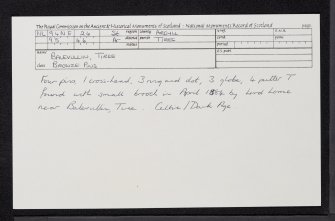 The Royal Commission on the Ancient & Historical Monuments of Scotland - National Monuments Record of Scotland
NL 94 NE 26 St region/county ARGYLL
95, 46, Ar district/parish TIREE
name BALEVULLIN, TIREE
class BRONZE PINS
Four pins 1 cross-head, 3 ring and dot, 3 globe, 4 putter T
found with small brooch in April 1864 by Lord Lorne
near Balevullin, Tiree. Celtic/Dark Age.